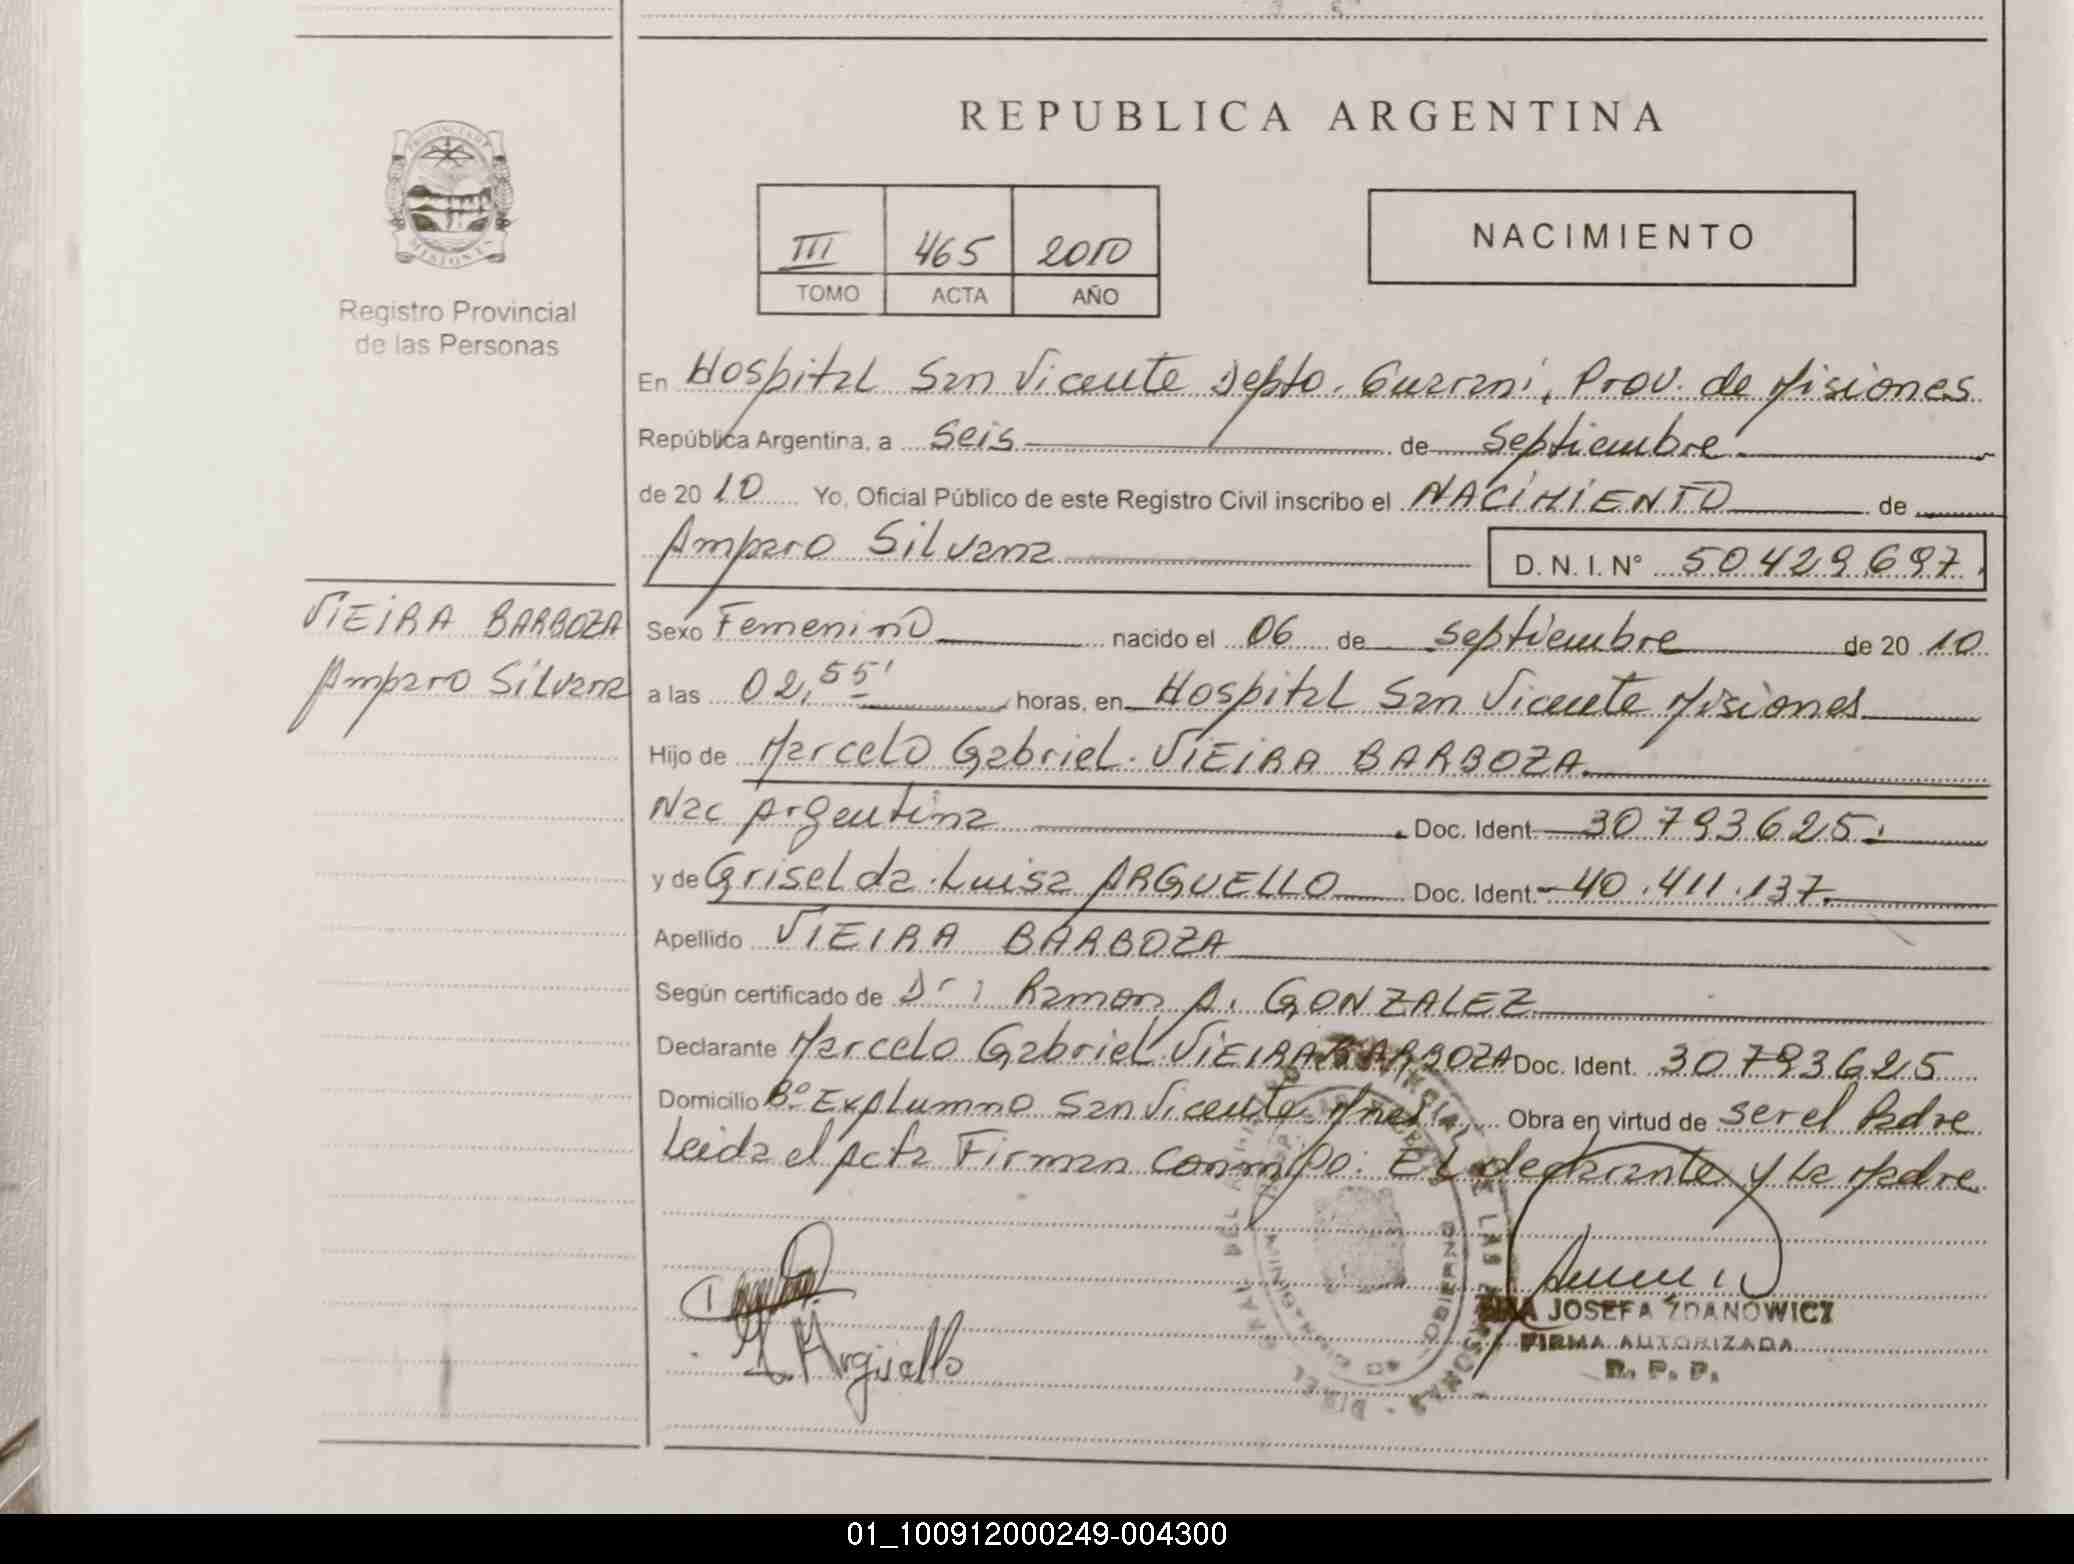 REPUBLICA ARGENTINA
III 465 2010
TOMO ACTA AÑO
NACIMIENTO
Registro Provincial
de las Personas
VIEIRA BARBOZA
Amparo Silvana
En Hospital San Vicente Depto. Guarani, Prov. de Misiones
República Argentina, a seis de septiembre
de 2010 Yo, Oficial Público de este Registro Civil inscribo el NACIMIENTO de
Amparo Silvana D.N.I.N° 50429697
Sexo Femenino nacido el 06 de septiembre de 2010
a las 02,55' horas, en Hospital San Vicente Misiones
Hijo de Marcelo Gabriel VIEIRA BARBOZA
Nac Argentina Doc. Ident. 30793625.
y de Griselda Luisa ARGUELLO Doc. Ident. 40.411.137
Apellido VIEIRA BARBOZA
Según certificado de Dr. Ramon A. GONZALEZ
Declarante Marcelo Gabriel VIEIRA BARBOZA Doc. Ident. 30793625
Domicilio B° San Vicente Mnes Obra en virtud de ser el Padre
Leida el Acta Firman El declarante y la Madre
Arguello
JOSEFA ZDANOWICZ
FIRMA AUTORIZADA
R. P. P.
01_100912000249-004300